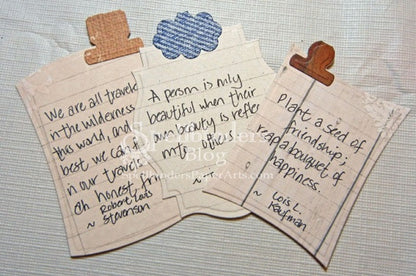 We are all travele
in the wilderness
this world, and
best we can
in our travels
an honest frie
Robert Louis
~ Stevenson
A person is only
beautiful when their
own beauty is reflec
into others
~
Plant a seed of
friendship;
reap a bouquet of
happiness.
~ Lois L.
Kaufman
Spellbinders
Blog
SpellbindersPaperArts.com